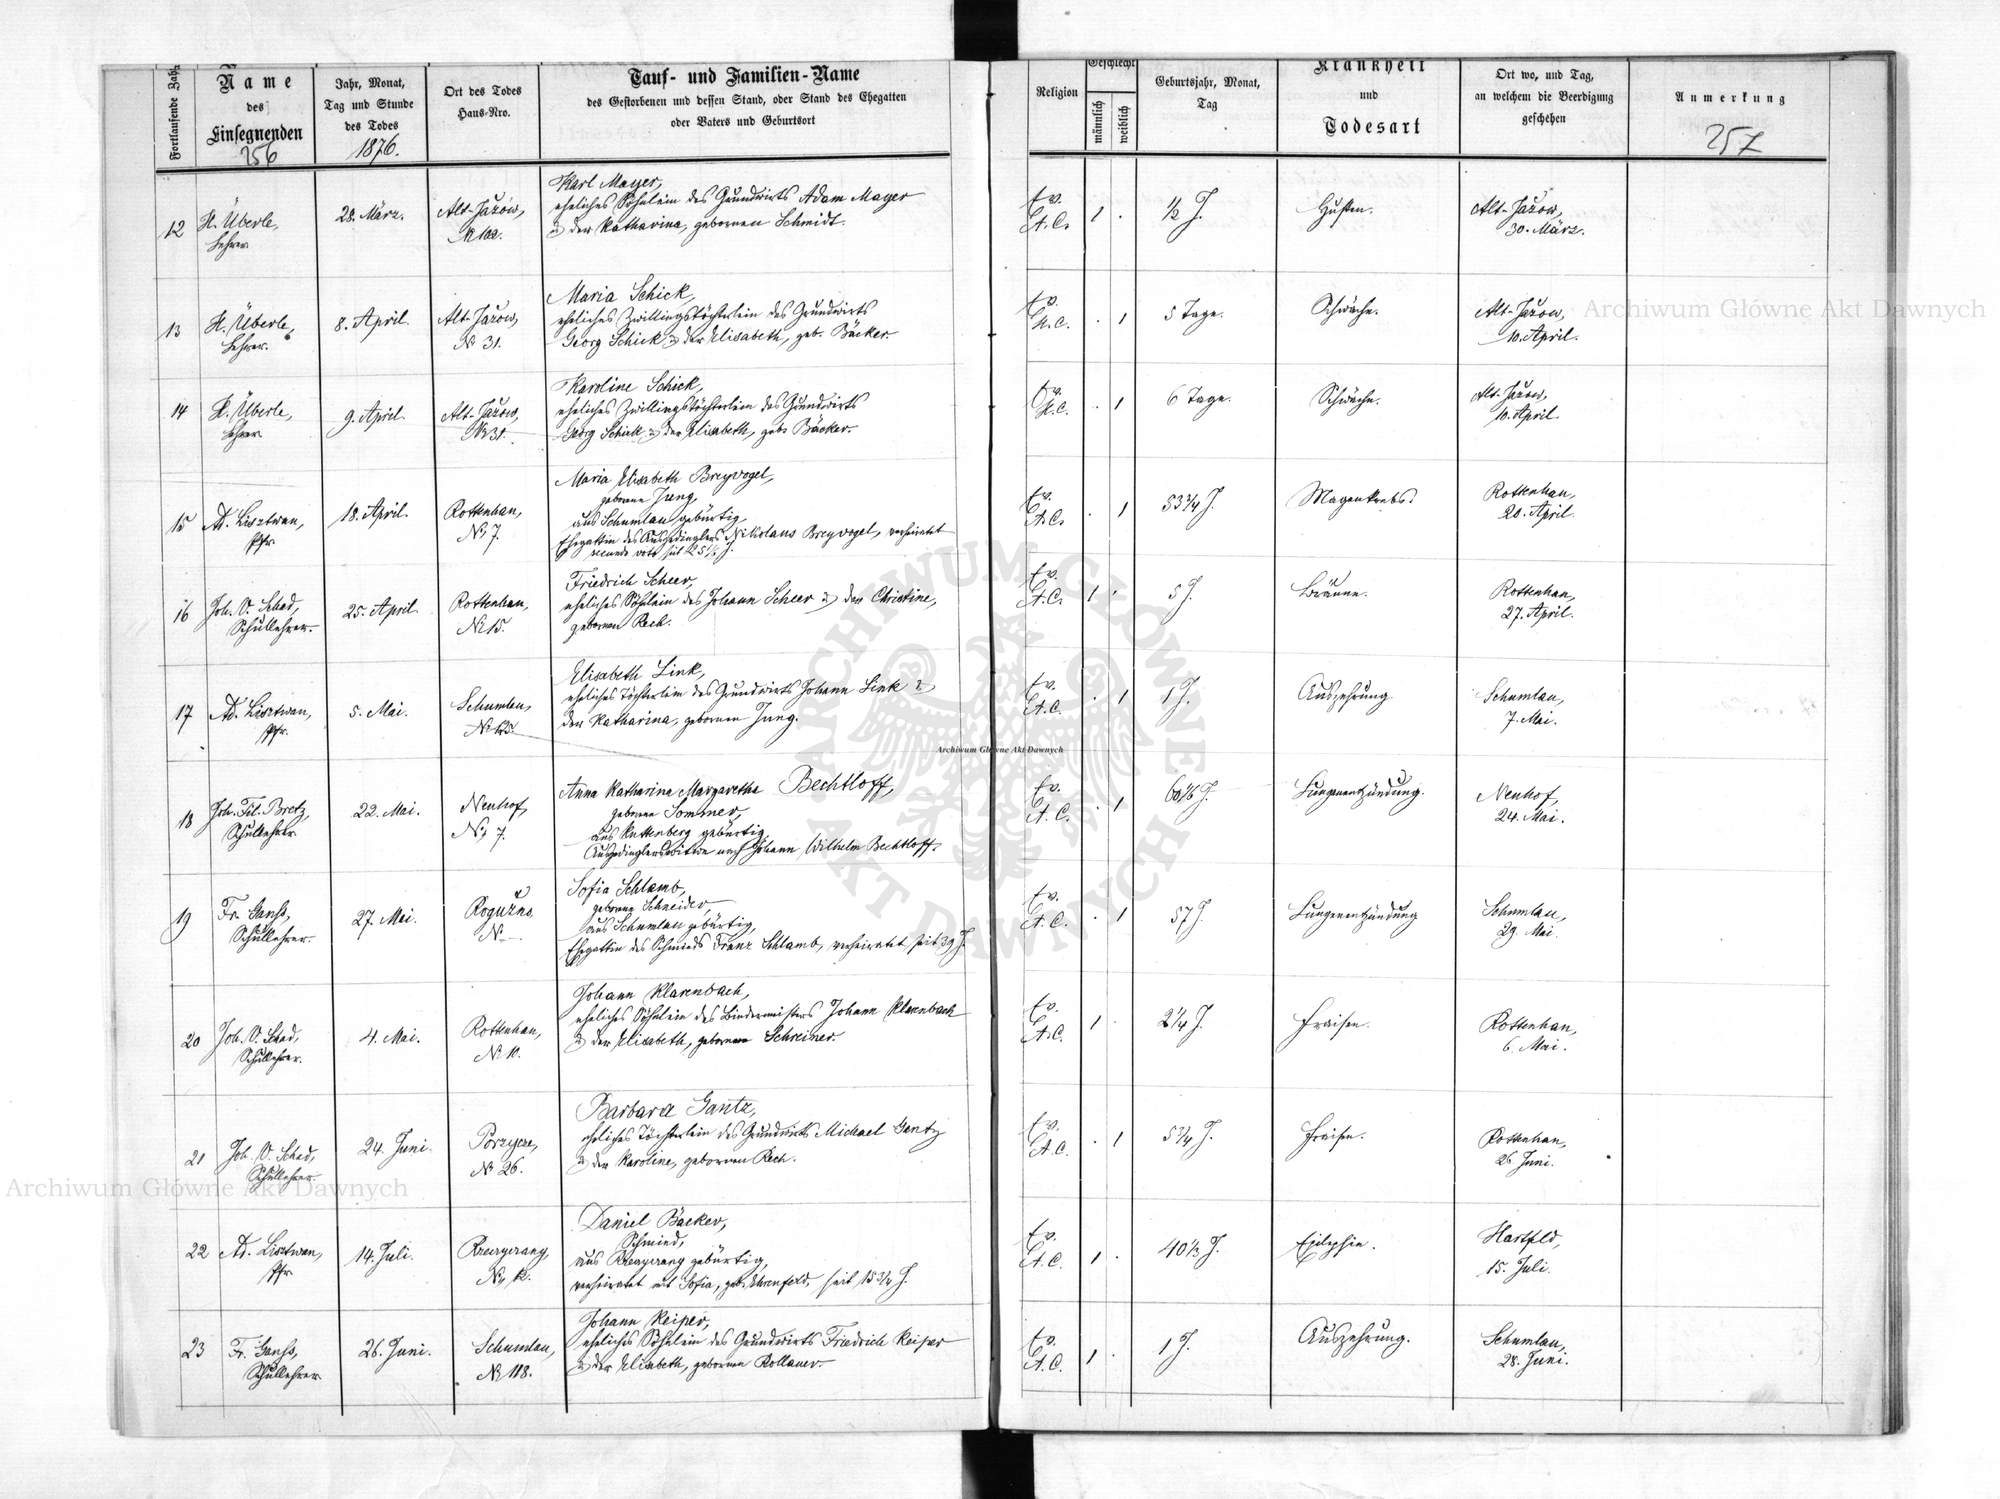 Fortlaufende Zahl
Name
des
Einsegnenden
256
Jahr, Monat,
Tag und Stunde
des Todes
1876.
Ort des Todes
Haus-Nro.
Tauf- und Familien-Name
des Gestorbenen und dessen Stand, oder Stand des Ehegatten
oder Vaters und Geburtsort
Religion
Geschlecht
männlich
weiblich
Geburtsjahr, Monat,
Tag
Krankheit
und
Todesart
Ort wo, und Tag,
an welchem die Beerdigung
geschehen
Anmerkung
257
12
H. Überle,
Lehrer
28. März.
Alt-Jažow,
№ 102.
Karl Mayer,
eheliches Söhnlein des Grundwirts Adam Mayer
& der Katharina, gebornen Schmidt.
Ev.
A.C.
1 .
1/2 J.
Husten.
Alt-Jažow,
30. März.
13
H. Überle,
Lehrer.
8. April.
Alt-Jažow,
№ 31.
Maria Schick,
eheliches Zwillingstöchterlein des Grundwirts
Georg Schick & der Elisabeth, geb. Bäcker.
Ev.
H.C.
. 1
5 Tage.
Schwäche.
Alt-Jažow,
10. April.
14
H. Überle,
Lehrer
9. April.
Alt-Jažow,
№ 31.
Karoline Schick,
eheliches Zwillingstöchterlein des Grundwirts
Georg Schick & der Elisabeth, geb. Bäcker.
Ev.
H.C.
. 1
6 Tage.
Schwäche.
Alt-Jažow,
10. April.
15
Ad. Lisztwan,
Pfr.
18. April.
Rottenhan,
№ 7.
Maria Elisabeth Breyvogel,
geborne Jung,
aus Schumlau gebürtig,
Ehegattin des Ausgedinglers Nikolaus Breyvogel, verheiratet
secundo voto seit 25 1/2 J.
Ev.
A.C.
. 1
53 3/4 J.
Magenkrebs.
Rottenhan,
20. April.
16
Joh. V. Schad,
Schullehrer.
25. April.
Rottenhan,
№ 15.
Friedrich Scheer,
eheliches Söhnlein des Johann Scheer & der Christine,
gebornen Rech.
Ev.
A.C.
1 .
5 J.
Bräune.
Rottenhan,
27. April.
17
Ad. Lisztwan,
Pfr.
5. Mai.
Schumlau,
№ 125.
Elisabeth Link,
eheliches Töchterlein des Grundwirts Johann Link &
der Katharina, gebornen Jung.
Ev.
A.C.
. 1
1 J.
Auszehrung
Schumlau,
7. Mai.
18
Joh. Fil. Bretz,
Schullehrer
22. Mai.
Neuhof,
№ 7.
Anna Katharina Margaretha Bechtloff,
geborne Sommer,
aus Kuttenberg gebürtig,
Ausgedinglerswitwe nach Johann Wilhelm Bechtloff.
Ev.
A.C.
. 1
J.
Lungenentzündung.
Neuhof,
24. Mai.
19
Fr. Ganß,
Schullehrer.
27. Mai.
Rogužno
№ —.
Sofia Schlamb,
geborne Schneider,
aus Schumlau gebürtig,
Ehegattin des Schmieds Franz Schlamb, verheiratet seit 39 J.
Ev.
A.C.
. 1
57 J.
Lungenentzündung
Schumlau,
29. Mai.
20
Joh. V. Schad,
Schullehrer.
4. Mai.
Rottenhan,
№ 10.
Johann Klarenbach,
eheliches Söhnlein des Bindermeisters Johann Klarenbach
& der Elisabeth, gebornen Schreiner.
Ev.
A.C.
1 .
2 1/4 J.
Fraisen.
Rottenhan,
6. Mai.
21
Joh. V. Schad,
Schullehrer.
24. Juni.
Porzycze,
№ 26.
Barbara Gantz,
eheliches Töchterlein des Grundwirts Michael Gantz
& der Karoline, gebornen Rech.
Ev.
A.C.
. 1
5 3/4 J.
Fraisen.
Rottenhan,
26. Juni.
22
Ad. Lisztwan,
Pfr
14. Juli.
№ 12.
Daniel Bäcker,
Schmied,
aus gebürtig,
verheiratet mit Sofia, geb. Ehrenfeld, seit 15 3/4 J.
Ev.
A.C.
1 .
40 1/3 J.
Epilepsie.
Hartfeld,
15. Juli.
23
Fr. Ganß,
Schullehrer
26. Juni.
Schumlau,
№ 118.
Johann Keiper,
eheliches Söhnlein des Grundwirts Friedrich Keiper
& der Elisabeth, gebornen Kollauer
Ev.
A.C.
1 .
1 J.
Auszehrung.
Schumlau,
28. Juni.
Archiwum Główne Akt Dawnych
Archiwum Główne Akt Dawnych
Archiwum Główne Akt Dawnych
ARCHIWUM GŁÓWNE
AKT DAWNYCH